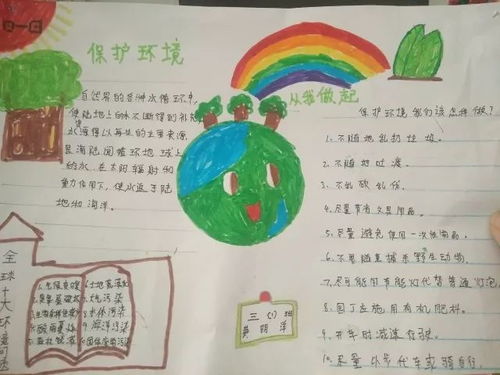 保护环境
从我做起
自然界的各种水循环中,
使陆地上的水不断得到补充
水资得以再生的主要来源
是海陆间循环地球上
的水,在太阳辐射和
重力作用下,使水返于陆
地和海洋。
保护环境我们该怎样做?
1、不随地乱扔垃圾。
2、不随地吐痰。
3、不乱砍乱伐。
4、尽量节省文具用品。
5、尽量避免使用一次性物品。
6、不随意捕杀野生动物。
7、尽可能用节能灯代替普通灯泡。
8、园丁应施用有机肥料。
9、开车时减速行驶。
10、尽量以步代车或骑自行
全球十大环境问题
1、气候变暖
2、臭氧层破坏
5、土地荒漠化
大气污染
水体污染
海洋污染
三(1)班